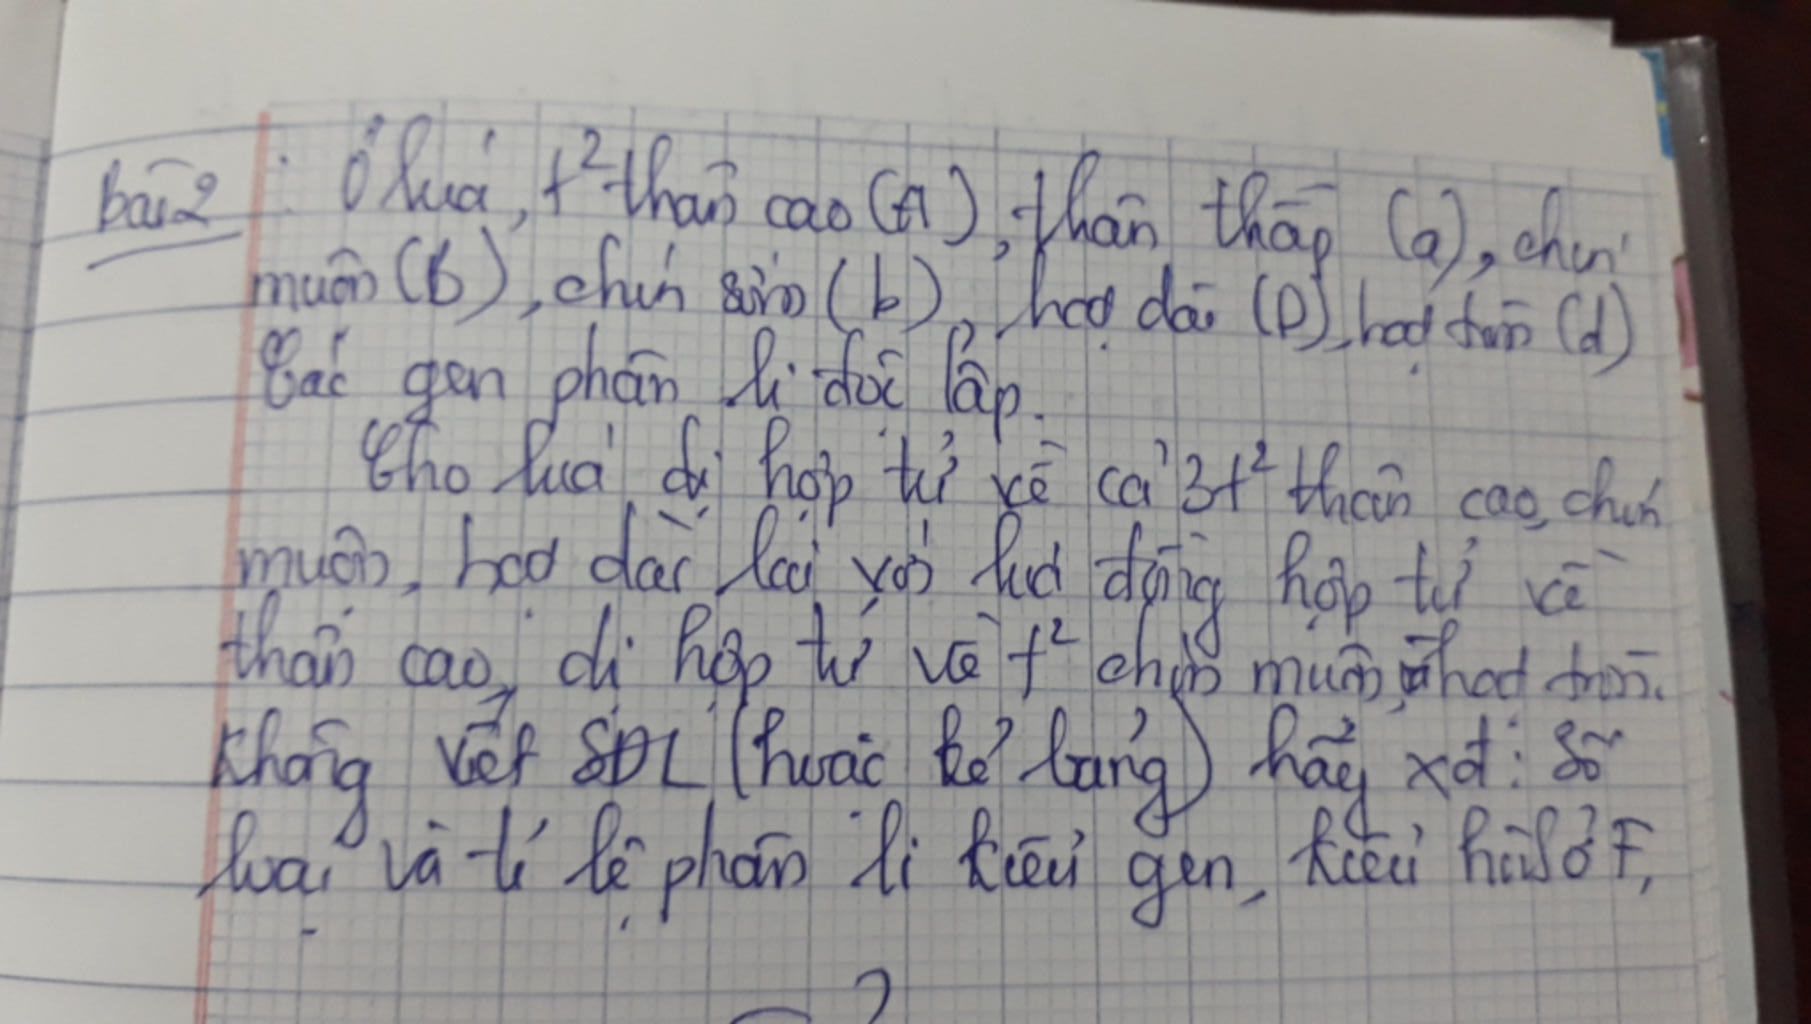 bài 2: Ở lúa, t² thân cao (A), thân thấp (a), chín
muộn (B), chín sớm (b), hạt dài (D), hạt tròn (d)
Các gen phân li độc lập.
Cho lúa dị hợp tử về cả 3 t² thân cao, chín
muộn, hạt dài lai với lúa đồng hợp tử về
thân cao, dị hợp tử về t² chín muộn, hạt tròn.
Không viết SĐL (hoặc kẻ bảng) hãy xđ: Số
loại và tỉ lệ phân li kiểu gen, kiểu hình ở F₁
?